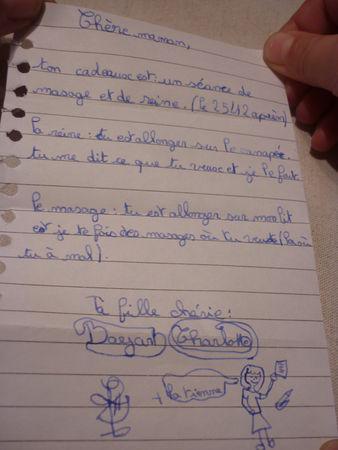 Chère maman,
ton cadeaux est: un séance de
masage et de reine. (le 25/12 aprèm)
la reine: tu est allonger sur le canapée.
tu me dit ce que tu veux et je le fait.
le masage: tu est allonger sur mon lit
et je te fais des masages où tu veux (là où
tu à mal).
Ta fille chérie:
Charlotte
+ la tienne